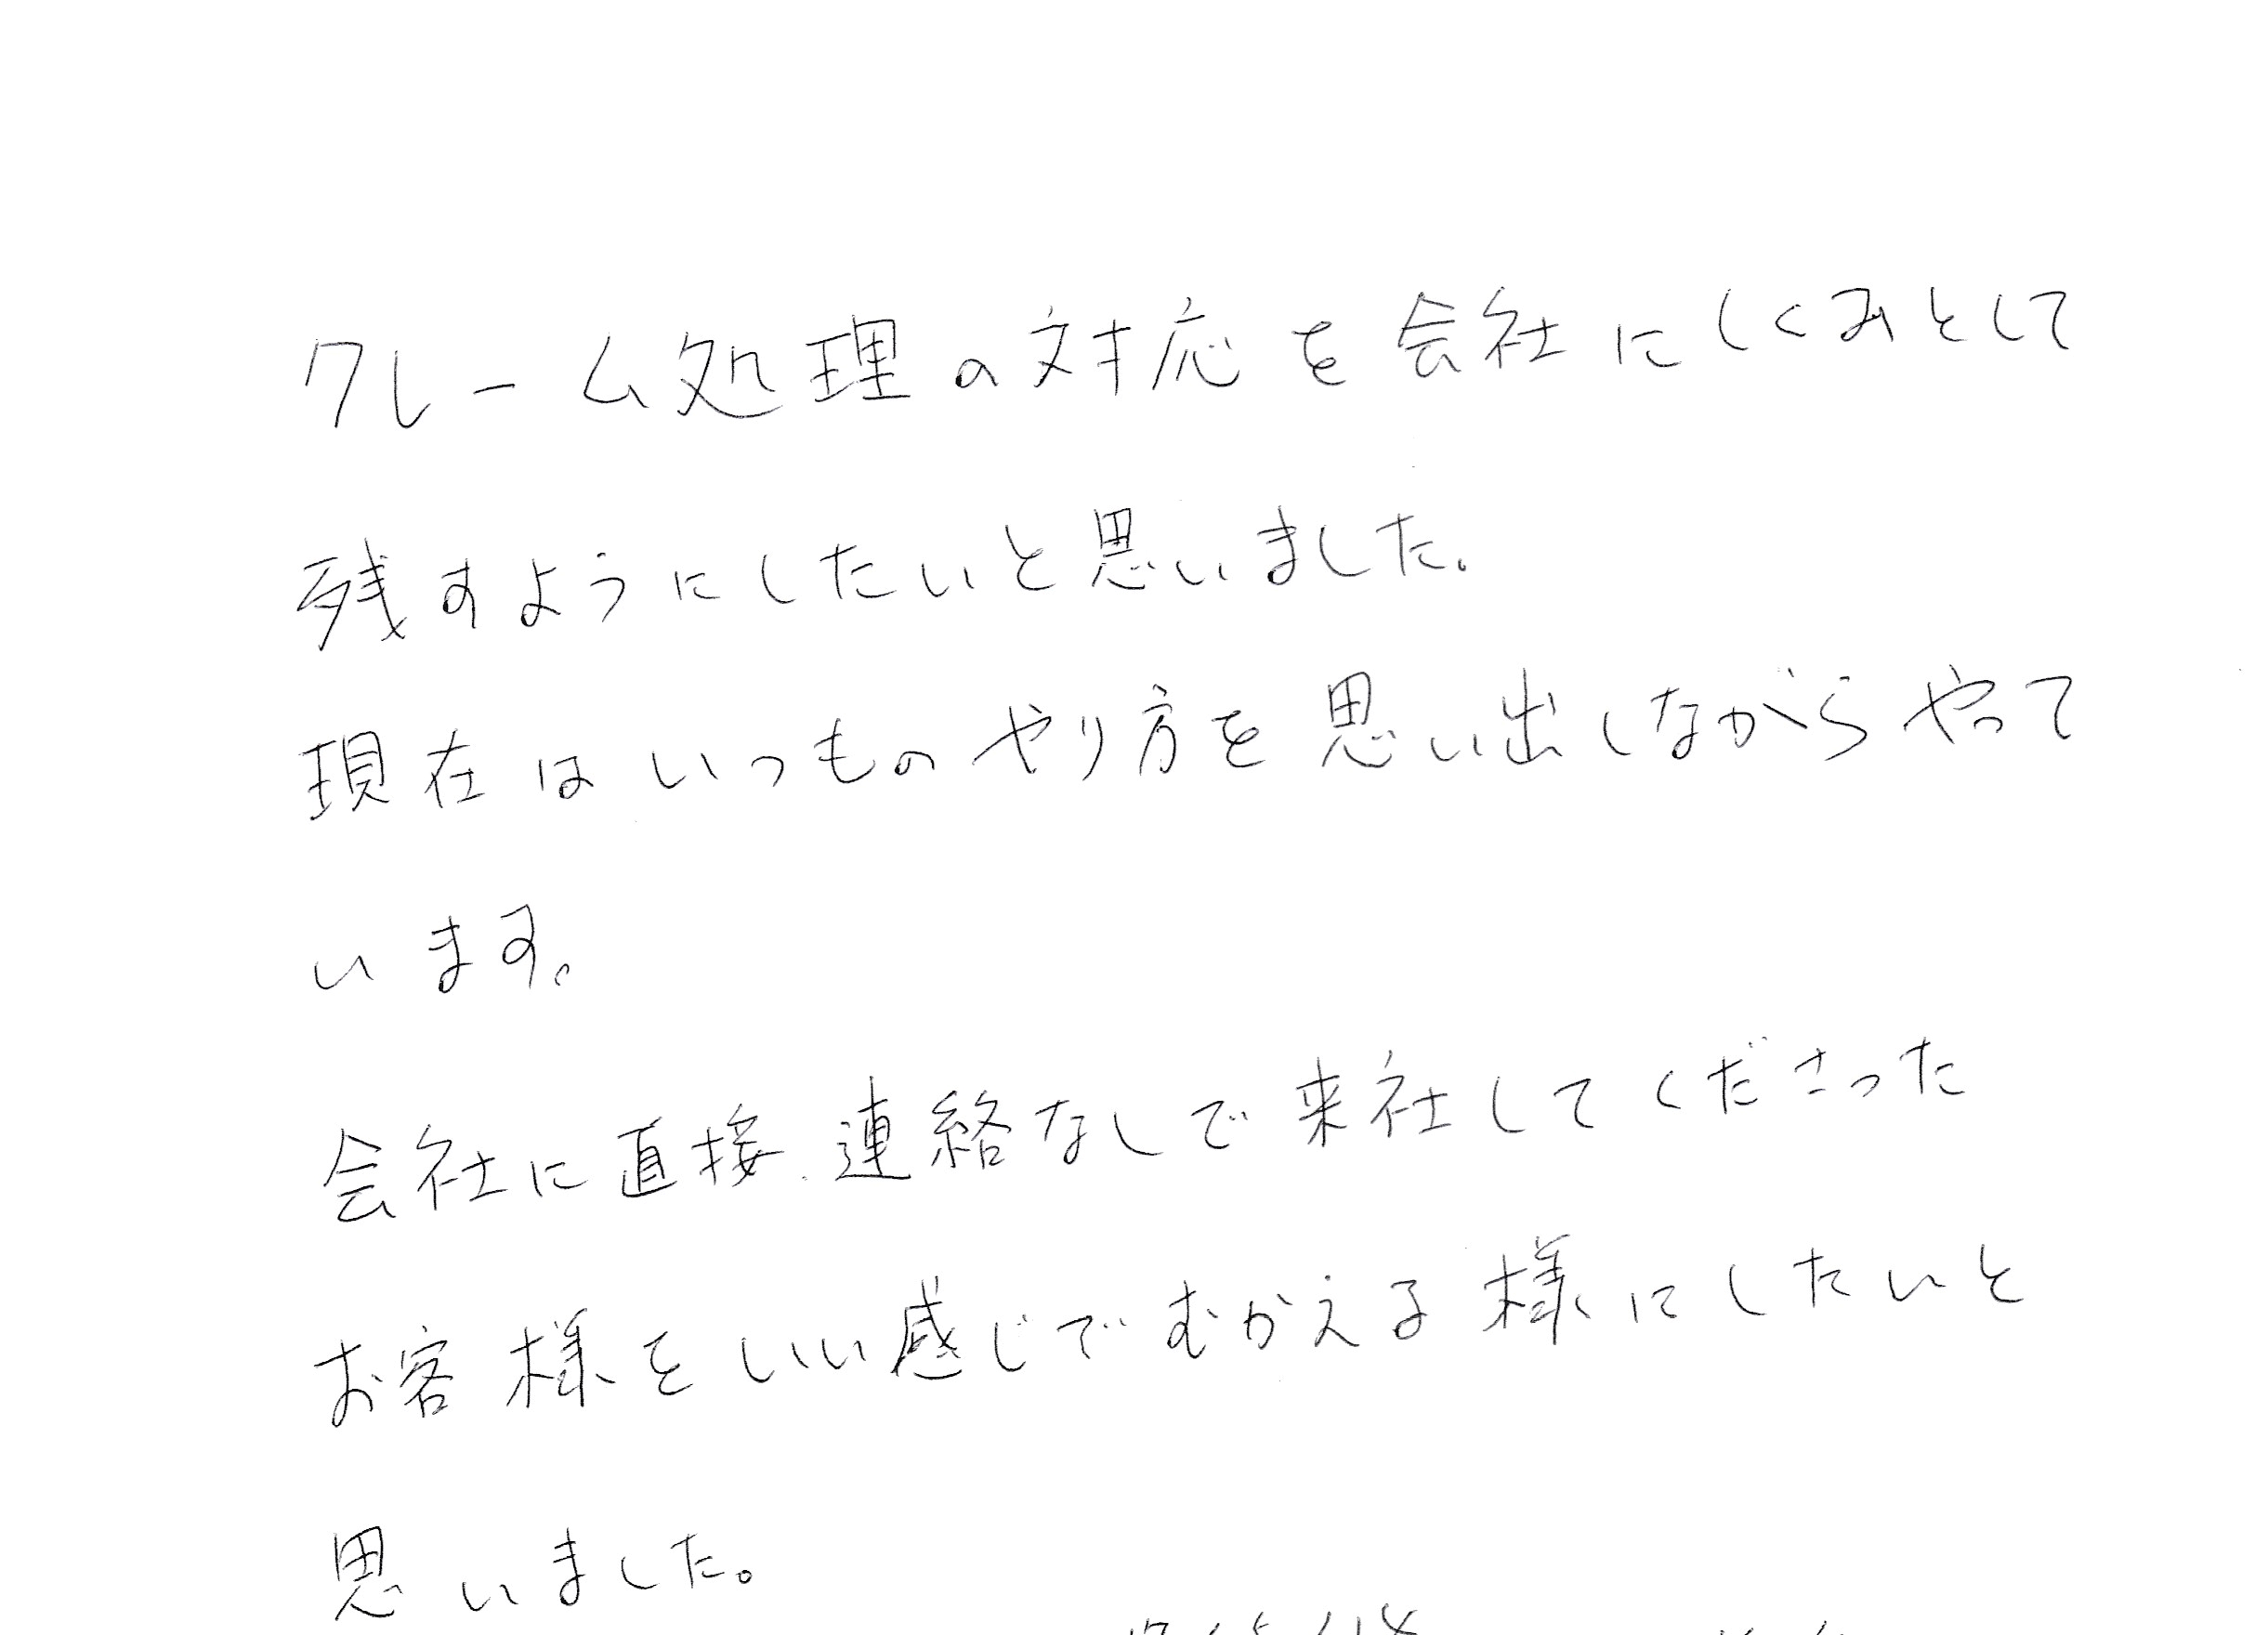 クレーム処理の対応を会社にしくみとして
残すようにしたいと思いました。
現在はいつものやり方を思い出しながらやって
います。
会社に直接、連絡なしで来社してくださった
お客様をいい感じでむかえる様にしたいと
思いました。